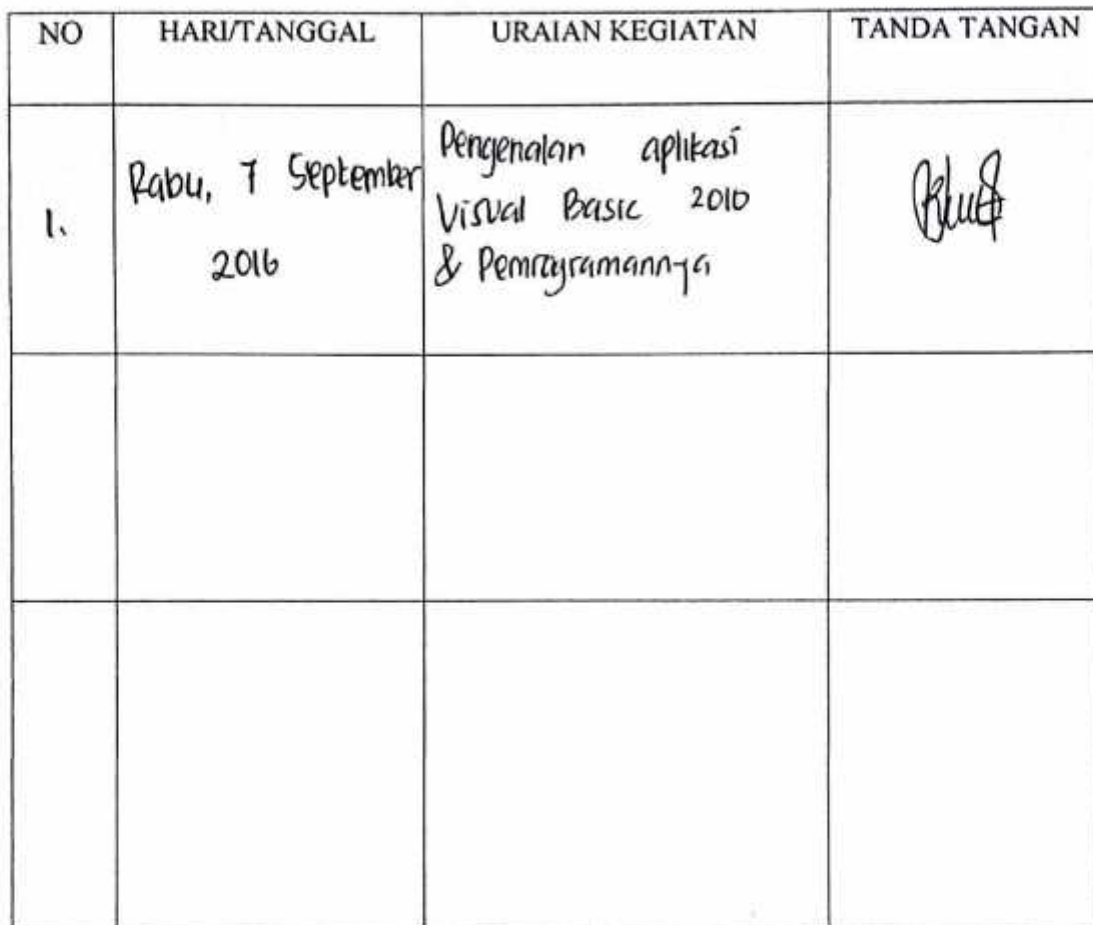 NO HARI/TANGGAL URAIAN KEGIATAN TANDA TANGAN
1.
Rabu, 7 September
2016
Pengenalan aplikasi
Visual Basic 2010
& Pemrogramannya